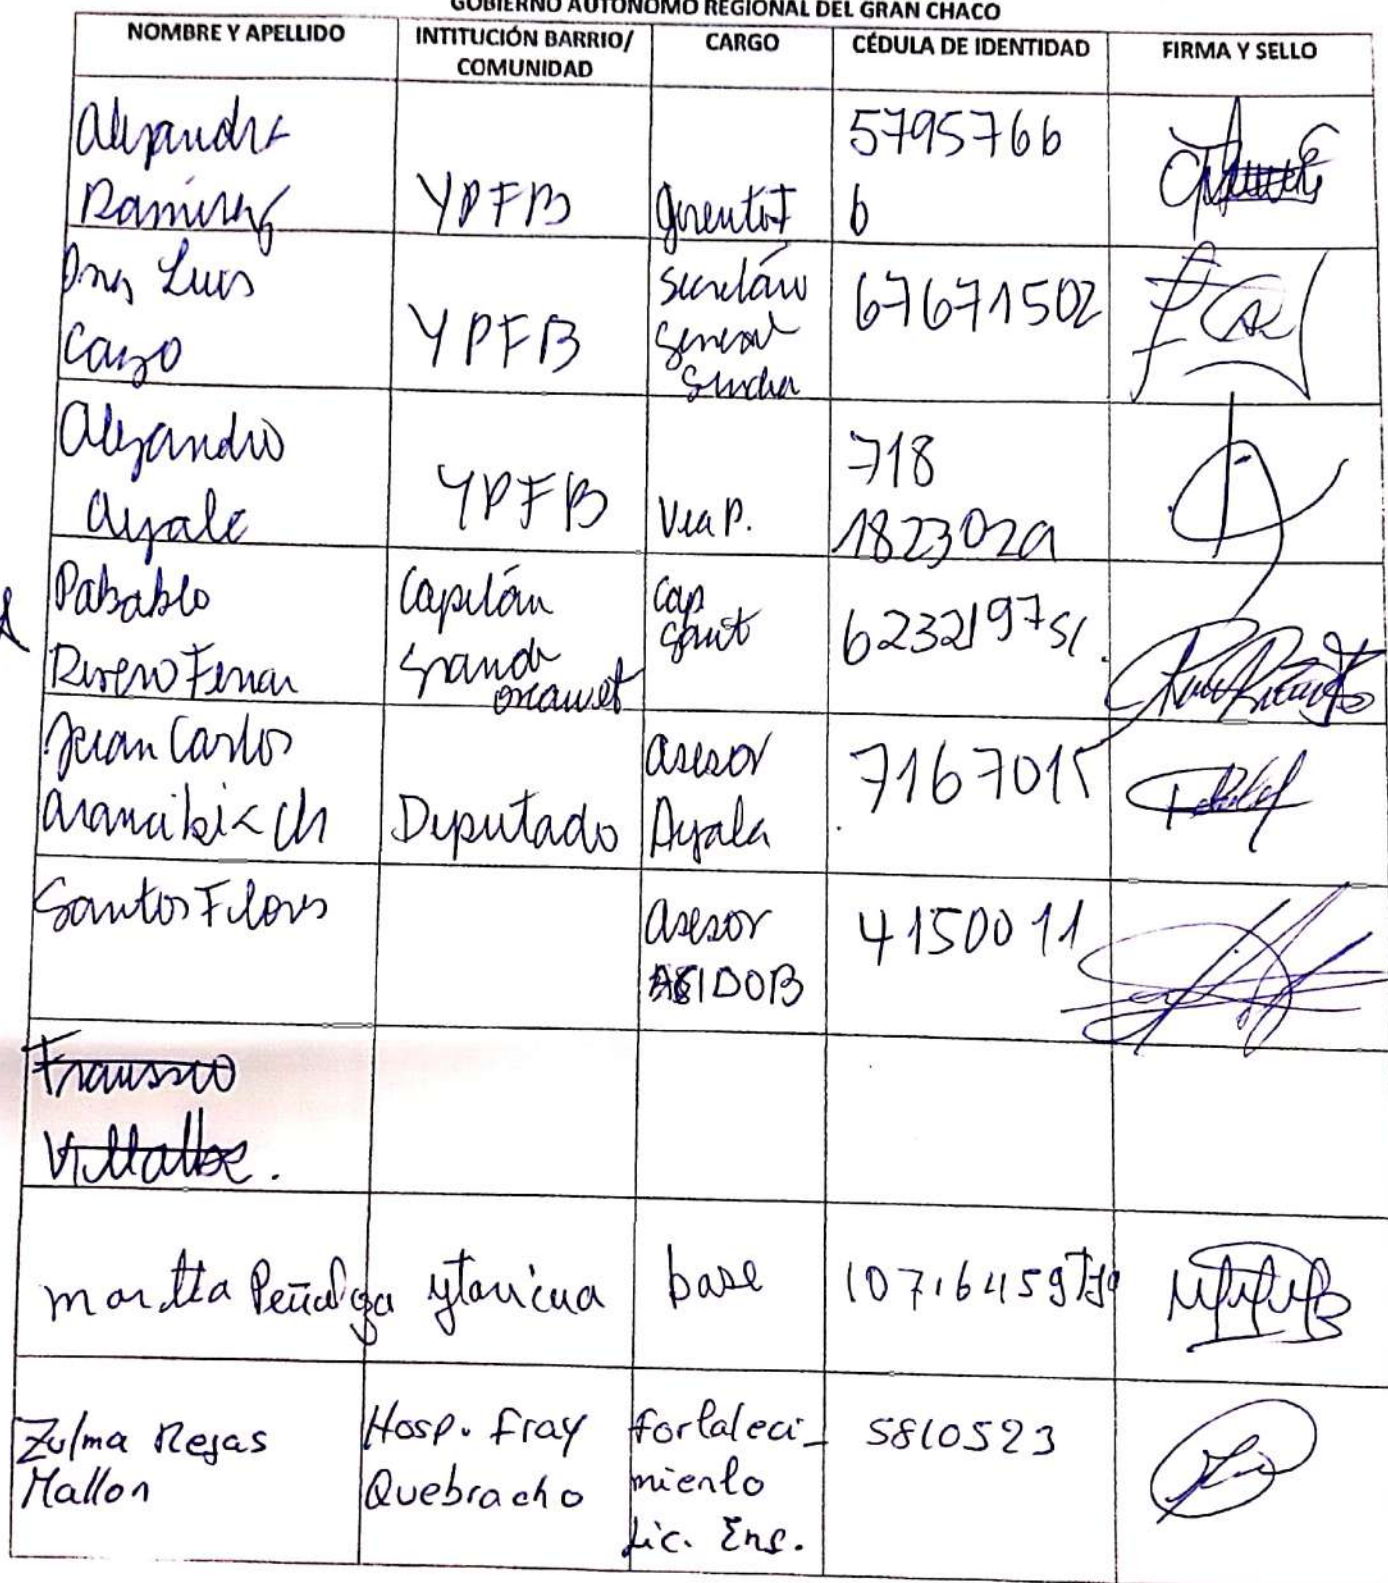 GOBIERNO AUTÓNOMO REGIONAL DEL GRAN CHACO
NOMBRE Y APELLIDO INTITUCIÓN BARRIO/ COMUNIDAD CARGO CÉDULA DE IDENTIDAD FIRMA Y SELLO
Alejandra
Ramirez
YPFB
5795766
6
Luis
Cazo
YPFB
Secretario
General
67671502
Alejandro
Ayala
YPFB
718
1823029
Pabablo
Rivero
Capitán
Grande
Cap
6232197 SC.
Juan Carlos
Arancibia Ch
Diputado
asesor
Ayala
7167015
Santos Flores
asesor
4150011
Villalba.
martta ytavicua base 10716459 Tja
Zulma Rejas
Mallon
Hosp. Fray
Quebracho
fortaleci-
miento
Lic. Enf.
5810523